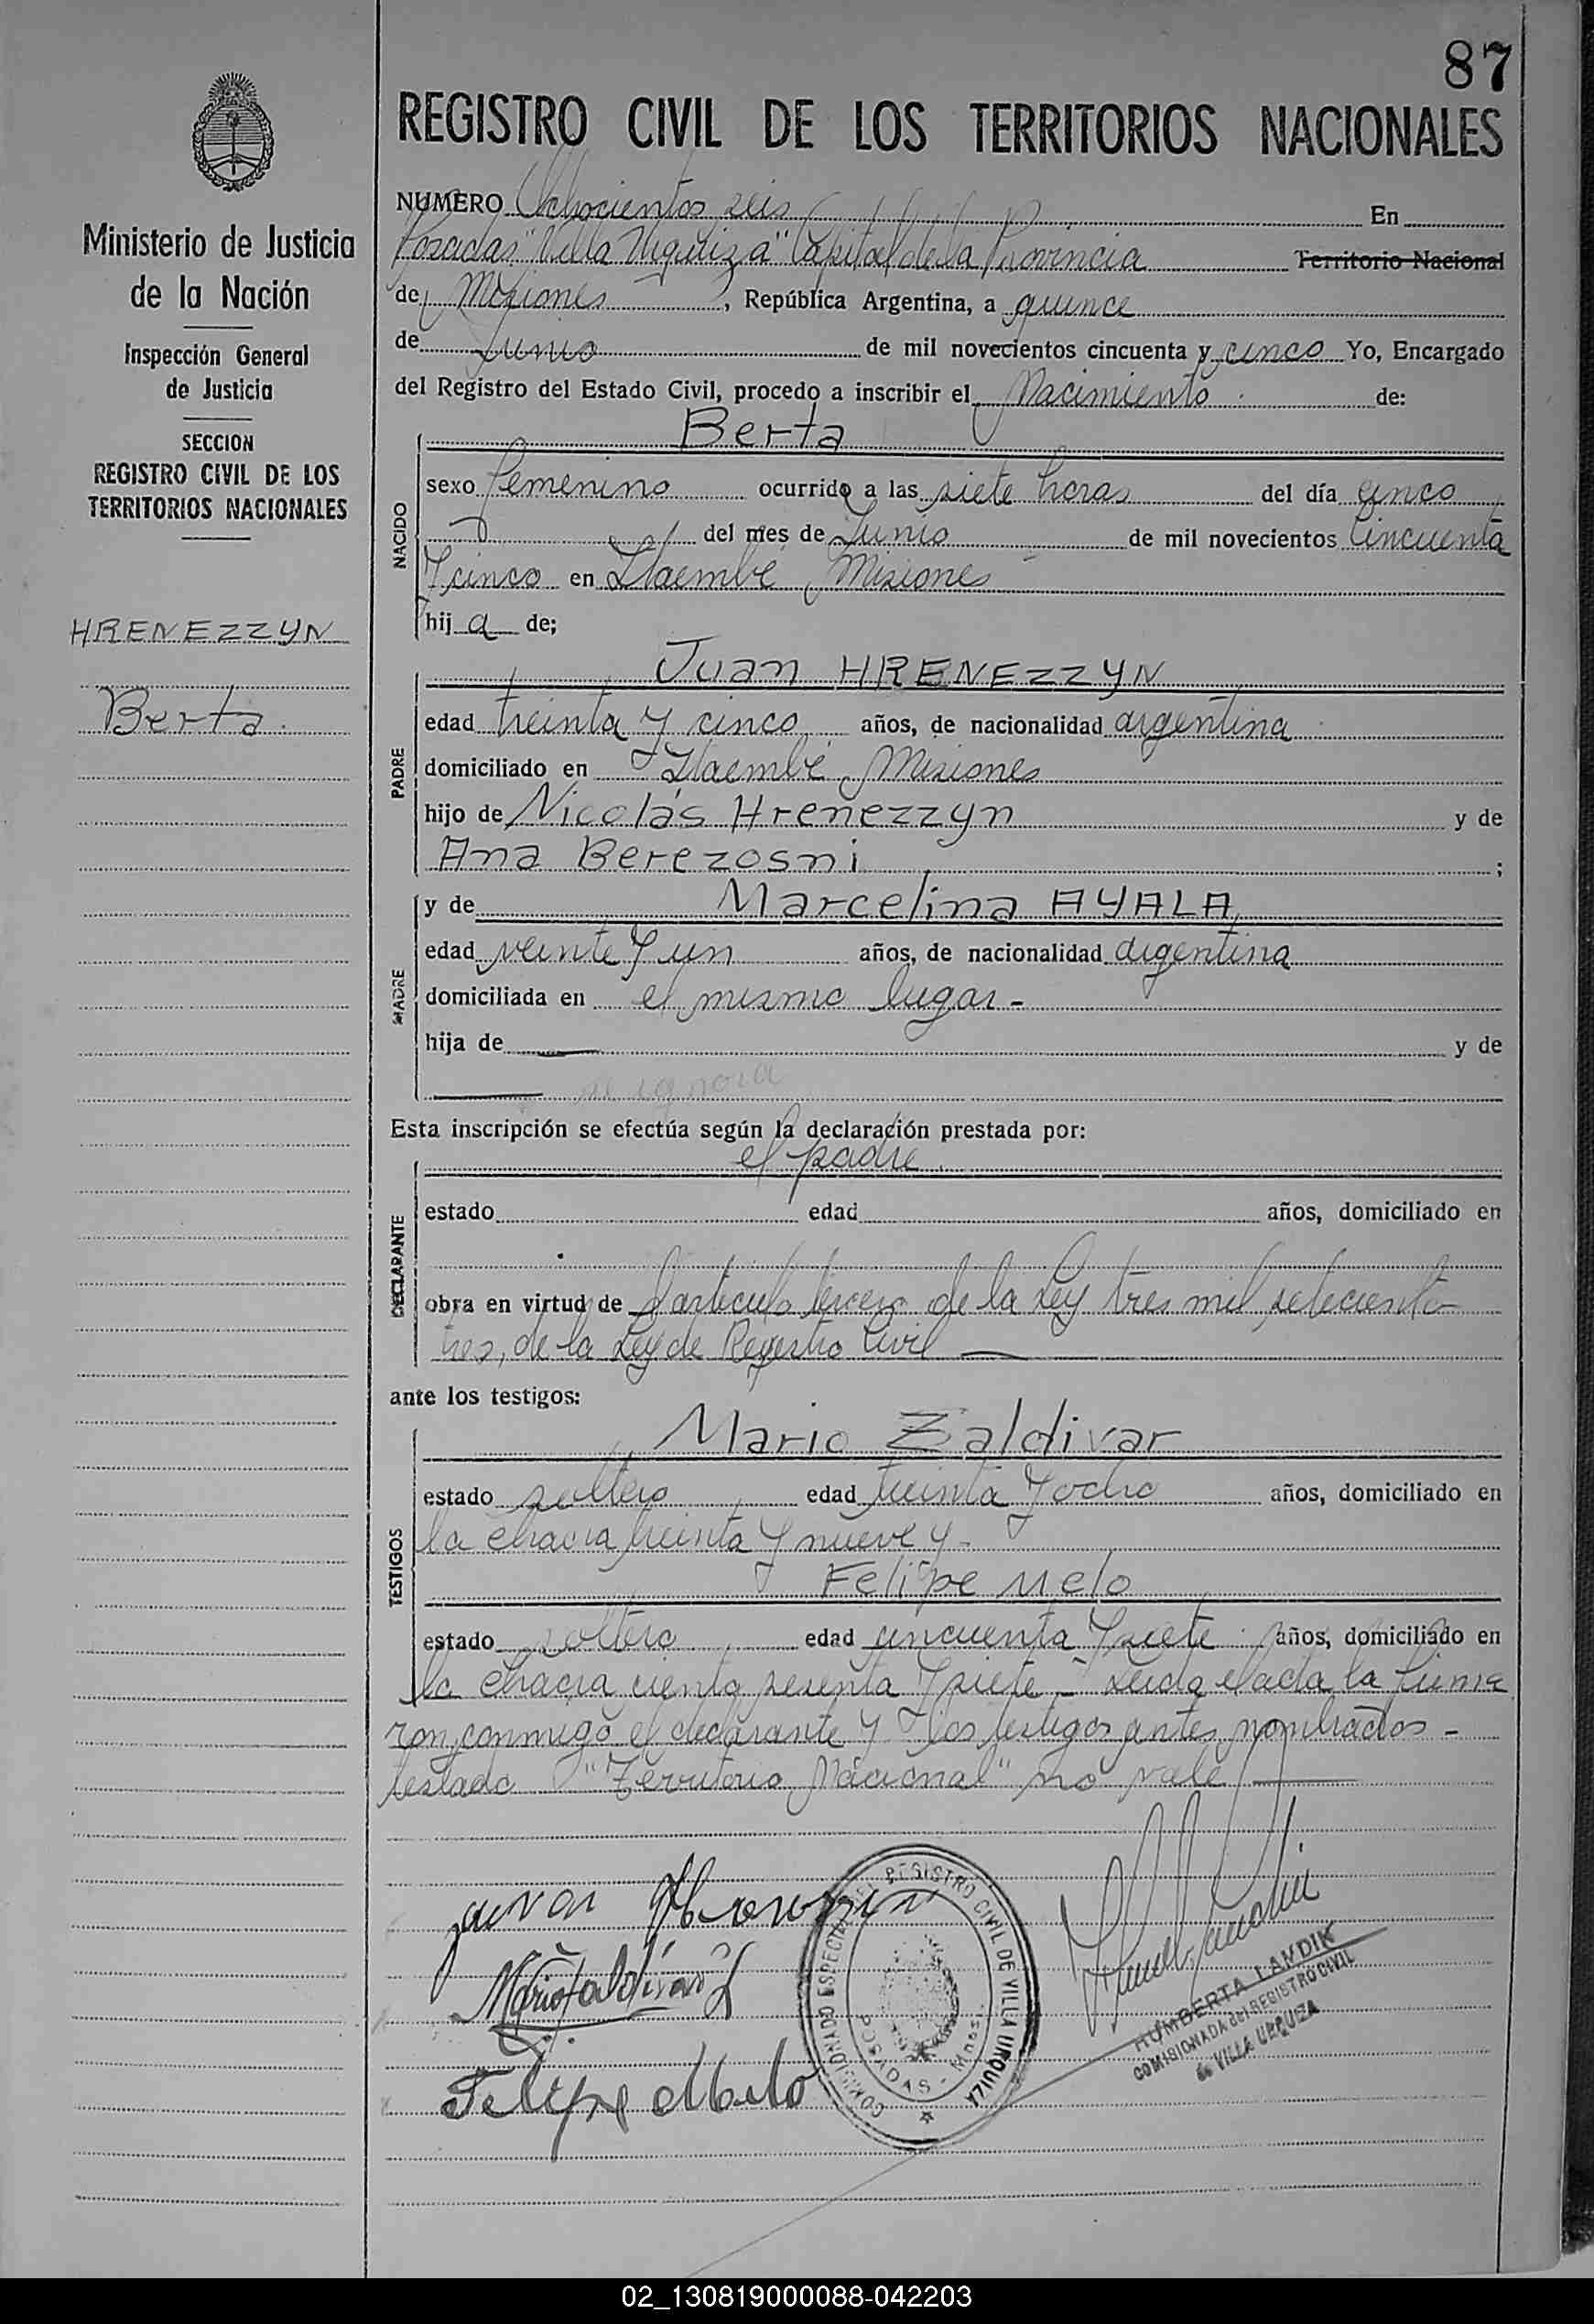 87
REGISTRO CIVIL DE LOS TERRITORIOS NACIONALES
Ministerio de Justicia
de la Nación
Inspección General
de Justicia
SECCION
REGISTRO CIVIL DE LOS
TERRITORIOS NACIONALES
HRENEZZYN
Berta.
NUMERO Ochocientos seis En
Posadas "Villa Urquiza" Capital de la Provincia Territorio Nacional
de Misiones, República Argentina, a quince
de Junio de mil novecientos cincuenta y cinco Yo, Encargado
del Registro del Estado Civil, procedo a inscribir el Nacimiento de:
NACIDO
Berta
sexo femenino ocurrido a las siete horas del día cinco
del mes de Junio de mil novecientos cincuenta
y cinco en Itaembé, Misiones
hij a de;
PADRE
Juan HRENEZZYN
edad treinta y cinco años, de nacionalidad argentina
domiciliado en Itaembé, Misiones
hijo de Nicolás Hrenezzyn y de
Ana Berezosni ;
MADRE
y de Marcelina AYALA
edad veinte y un años, de nacionalidad argentina
domiciliada en el mismo lugar -
hija de — y de
— se ignora
Esta inscripción se efectúa según la declaración prestada por:
DECLARANTE
el padre.
estado edad años, domiciliado en
obra en virtud de artículo tercero de la Ley tres mil setecientos
tres, de la Ley de Registro Civil —
ante los testigos:
TESTIGOS
Mario Zaldivar
estado soltero edad treinta y ocho años, domiciliado en
la chacra treinta y nueve y -
Felipe Melo
estado soltero edad cincuenta y siete años, domiciliado en
la chacra ciento sesenta y siete - Leida el acta la firma
ron conmigo el declarante y los testigos antes nombrados -
testado "Territorio Nacional" no vale —
juan
Felipe Melo
COMISIONADO ESPECIAL DEL REGISTRO CIVIL DE VILLA URQUIZA
POSADAS - Mnes.
HUMBERTA LANDIK
COMISIONADA del REGISTRO CIVIL
de VILLA URQUIZA
02_130819000088-042203